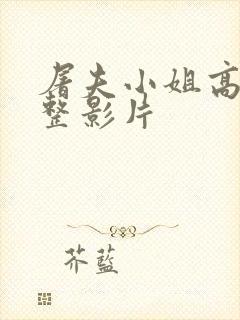 屠夫小姐高
整影片
芥蓝